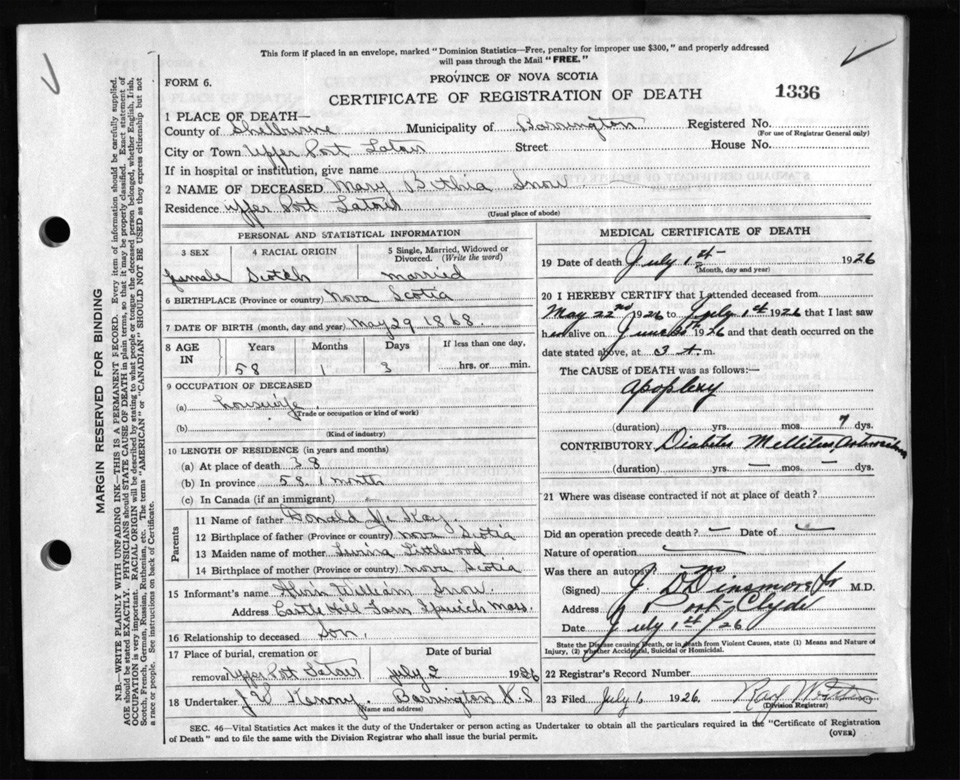 This form if placed in an envelope, marked "Dominion Statistics—Free, penalty for improper use $300," and properly addressed
will pass through the Mail "FREE."
FORM 6.
PROVINCE OF NOVA SCOTIA
CERTIFICATE OF REGISTRATION OF DEATH
1336
1 PLACE OF DEATH—
County of Shelburne Municipality of Barrington Registered No.
(For use of Registrar General only)
City or Town Upper Port Latour Street House No.
If in hospital or institution, give name
2 NAME OF DECEASED Mary Bethia Snow
Residence Upper Port Latour
(Usual place of abode)
PERSONAL AND STATISTICAL INFORMATION
3 SEX 4 RACIAL ORIGIN 5 Single, Married, Widowed or
Divorced. (Write the word)
female Scotch married
6 BIRTHPLACE (Province or country) Nova Scotia
7 DATE OF BIRTH (month, day and year) May 29 1868.
8 AGE IN Years Months Days If less than one day,
58 1 3 hrs. or min.
9 OCCUPATION OF DECEASED
(a) housewife
(Trade or occupation or kind of work)
(b)
(Kind of industry)
10 LENGTH OF RESIDENCE (in years and months)
(a) At place of death 38
(b) In province 58. 1 month
(c) In Canada (if an immigrant)
Parents
11 Name of father Donald McKay.
12 Birthplace of father (Province or country) Nova Scotia
13 Maiden name of mother Littlewood
14 Birthplace of mother (Province or country) Nova Scotia
15 Informant's name William Snow.
Address Castle Hill Farm Ipswich Mass.
16 Relationship to deceased Son.
17 Place of burial, cremation or Date of burial
removal Upper Port Latour July 2 1926
18 Undertaker Kenny. Barrington N.S
(Name and address)
MEDICAL CERTIFICATE OF DEATH
19 Date of death July 1st 1926
(Month, day and year)
20 I HEREBY CERTIFY that I attended deceased from
May 22nd 1926 to July 1st 1926 that I last saw
her alive on June 30th 1926 and that death occurred on
date stated above, at 3 A.m.
The CAUSE of DEATH was as follows:—
Apoplexy
(duration) yrs. mos. 7 dys.
CONTRIBUTORY Diabetes Mellitus
(duration) yrs. — mos. — dys.
21 Where was disease contracted if not at place of death?
Did an operation precede death? — Date of —
Nature of operation
Was there an autopsy? no
(Signed) J. D Dinsmore Jr M.D.
Address Port Clyde
Date July 1st /26
State the Disease causing Death, or in death from Violent Causes, state (1) Means and Nature of
Injury, (2) whether Accidental, Suicidal or Homicidal.
22 Registrar's Record Number
23 Filed July 6 1926.
(Division Registrar)
SEC. 46—Vital Statistics Act makes it the duty of the Undertaker or person acting as Undertaker to obtain all the particulars required in the "Certificate of Registration
of Death" and to file the same with the Division Registrar who shall issue the burial permit.
(OVER)
MARGIN RESERVED FOR BINDING
N.B.—WRITE PLAINLY WITH UNFADING INK—THIS IS A PERMANENT RECORD. Every item of information should be carefully supplied.
AGE should be stated EXACTLY. PHYSICIANS should STATE CAUSE OF DEATH in plain terms, so that it may be properly classified. Exact statement of
OCCUPATION is very important. RACIAL ORIGIN will be described by stating to what people or tongue the deceased person belonged, whether English, Irish,
Scotch, French, German, Russian, Ruthenian, etc. The terms "AMERICAN" or "CANADIAN" SHOULD NOT BE USED as they express citizenship but not
a race or people. See instructions on back of Certificate.